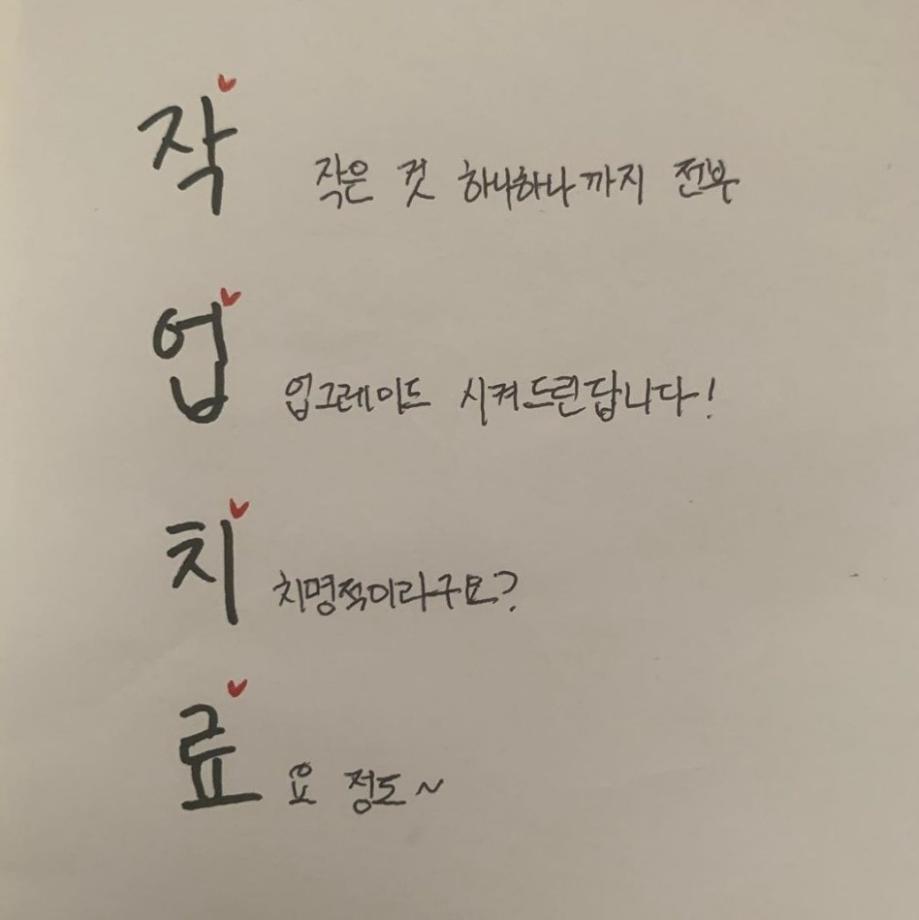 작 작은 것 하나하나까지 전부
업 업그레이드 시켜드린답니다!
치 치명적이라구요?
료 요 정도~